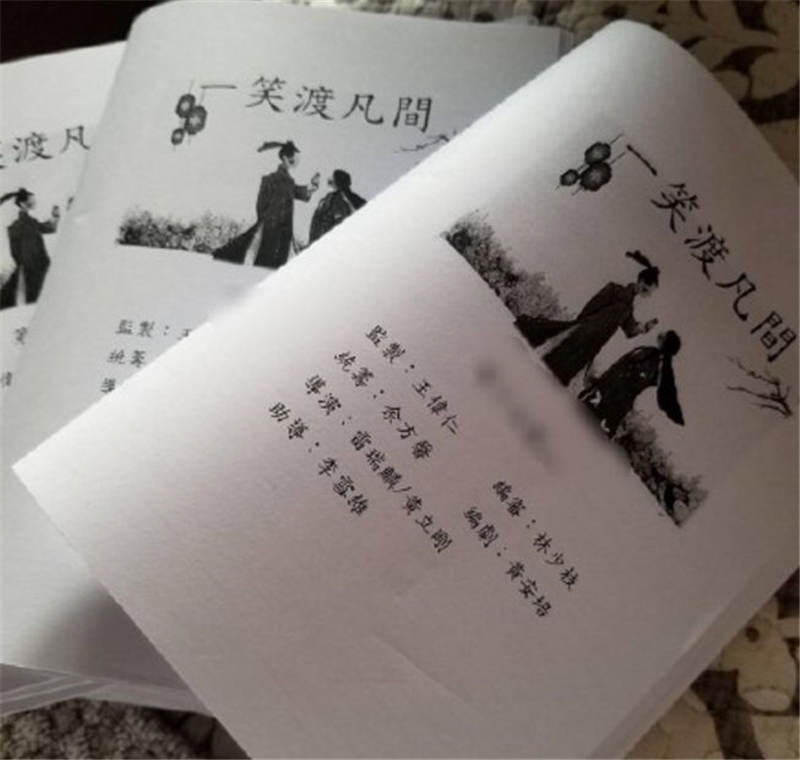 渡凡
一笑渡凡間
監製：王
統籌
導
一笑渡凡間
監製：王偉仁
統籌：余方馨
導演：雷瑞麟/黃立剛
助導：李雪維
編審：林少棧
編劇：黃安培